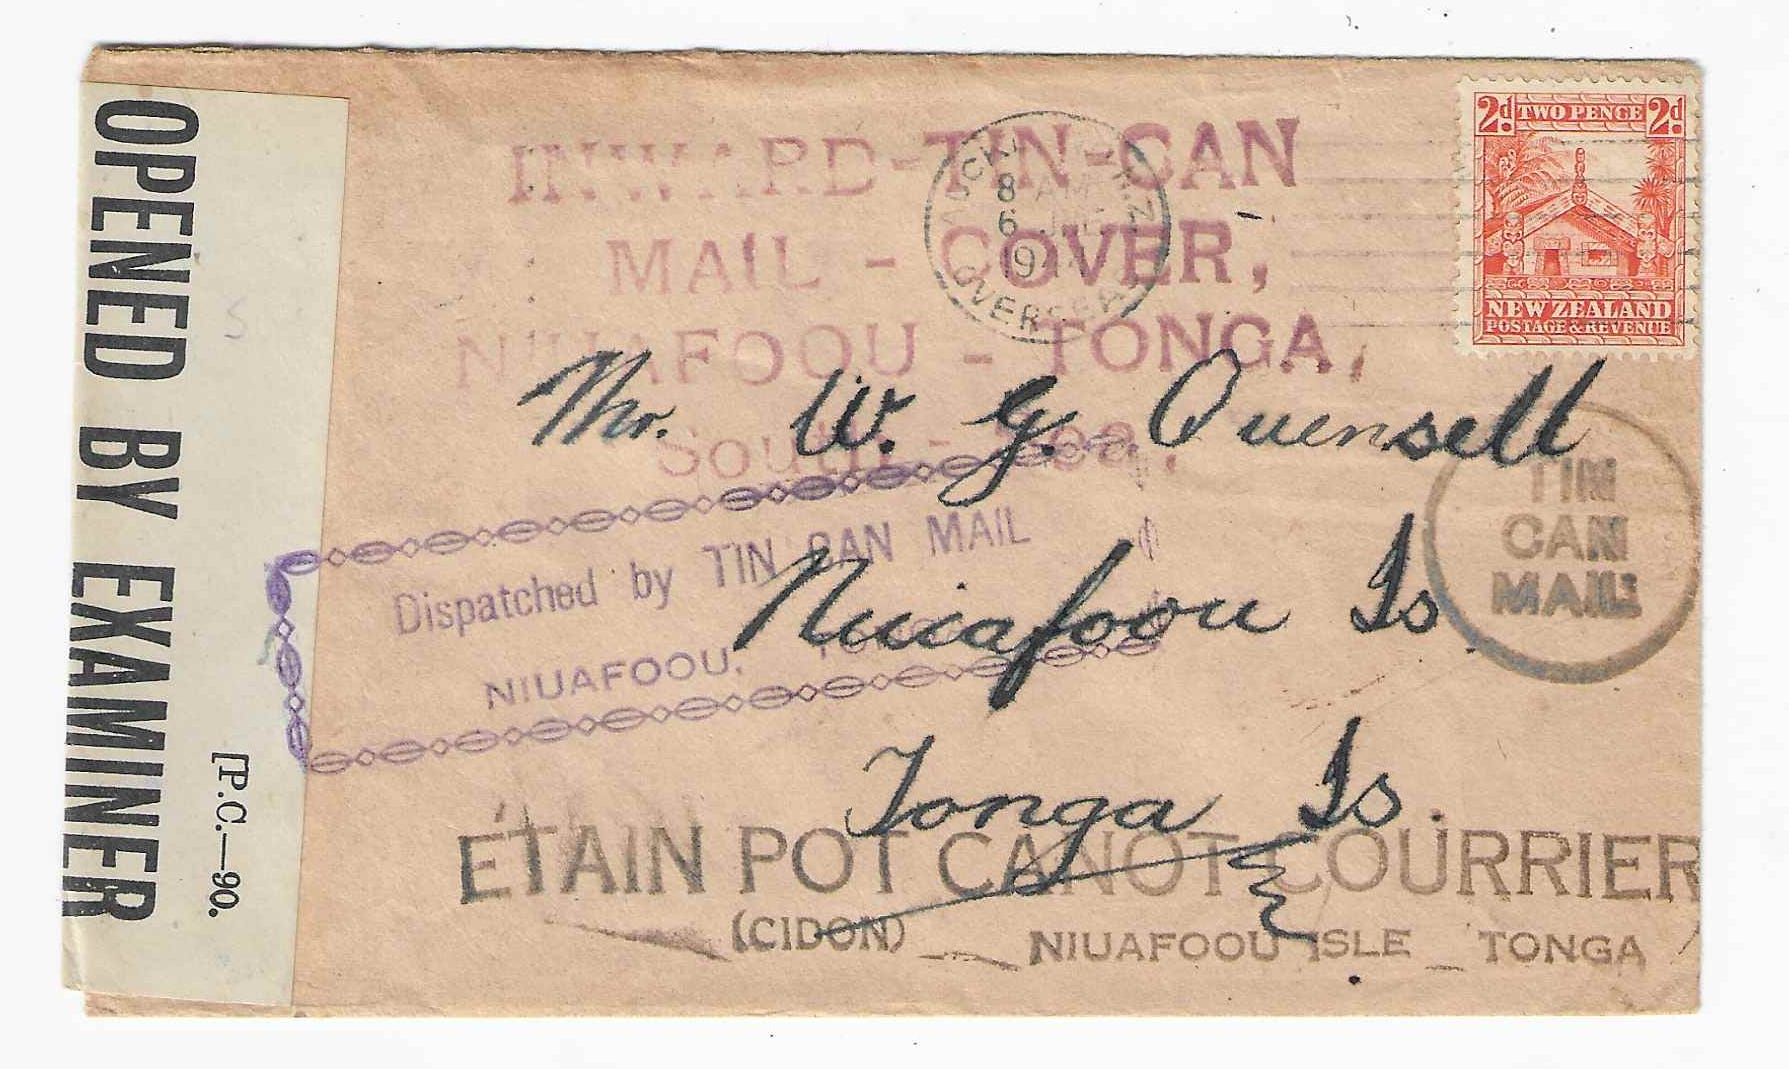 OPENED BY EXAMINER
[P.C.—90.
INWARD-TIN-CAN
MAIL - COVER,
NIUAFOOU - TONGA,
South - Sea,
8 AM
6
OVERSEA
2d TWO PENCE 2d
NEW ZEALAND
POSTAGE & REVENUE
Mr. W. G. Quensell
Niuafoou Is
Tonga Is.
TIN
CAN
MAIL
Dispatched by TIN CAN MAIL
NIUAFOOU,
ÉTAIN POT CANOT COURRIER
(CIDON) NIUAFOOU ISLE _ TONGA